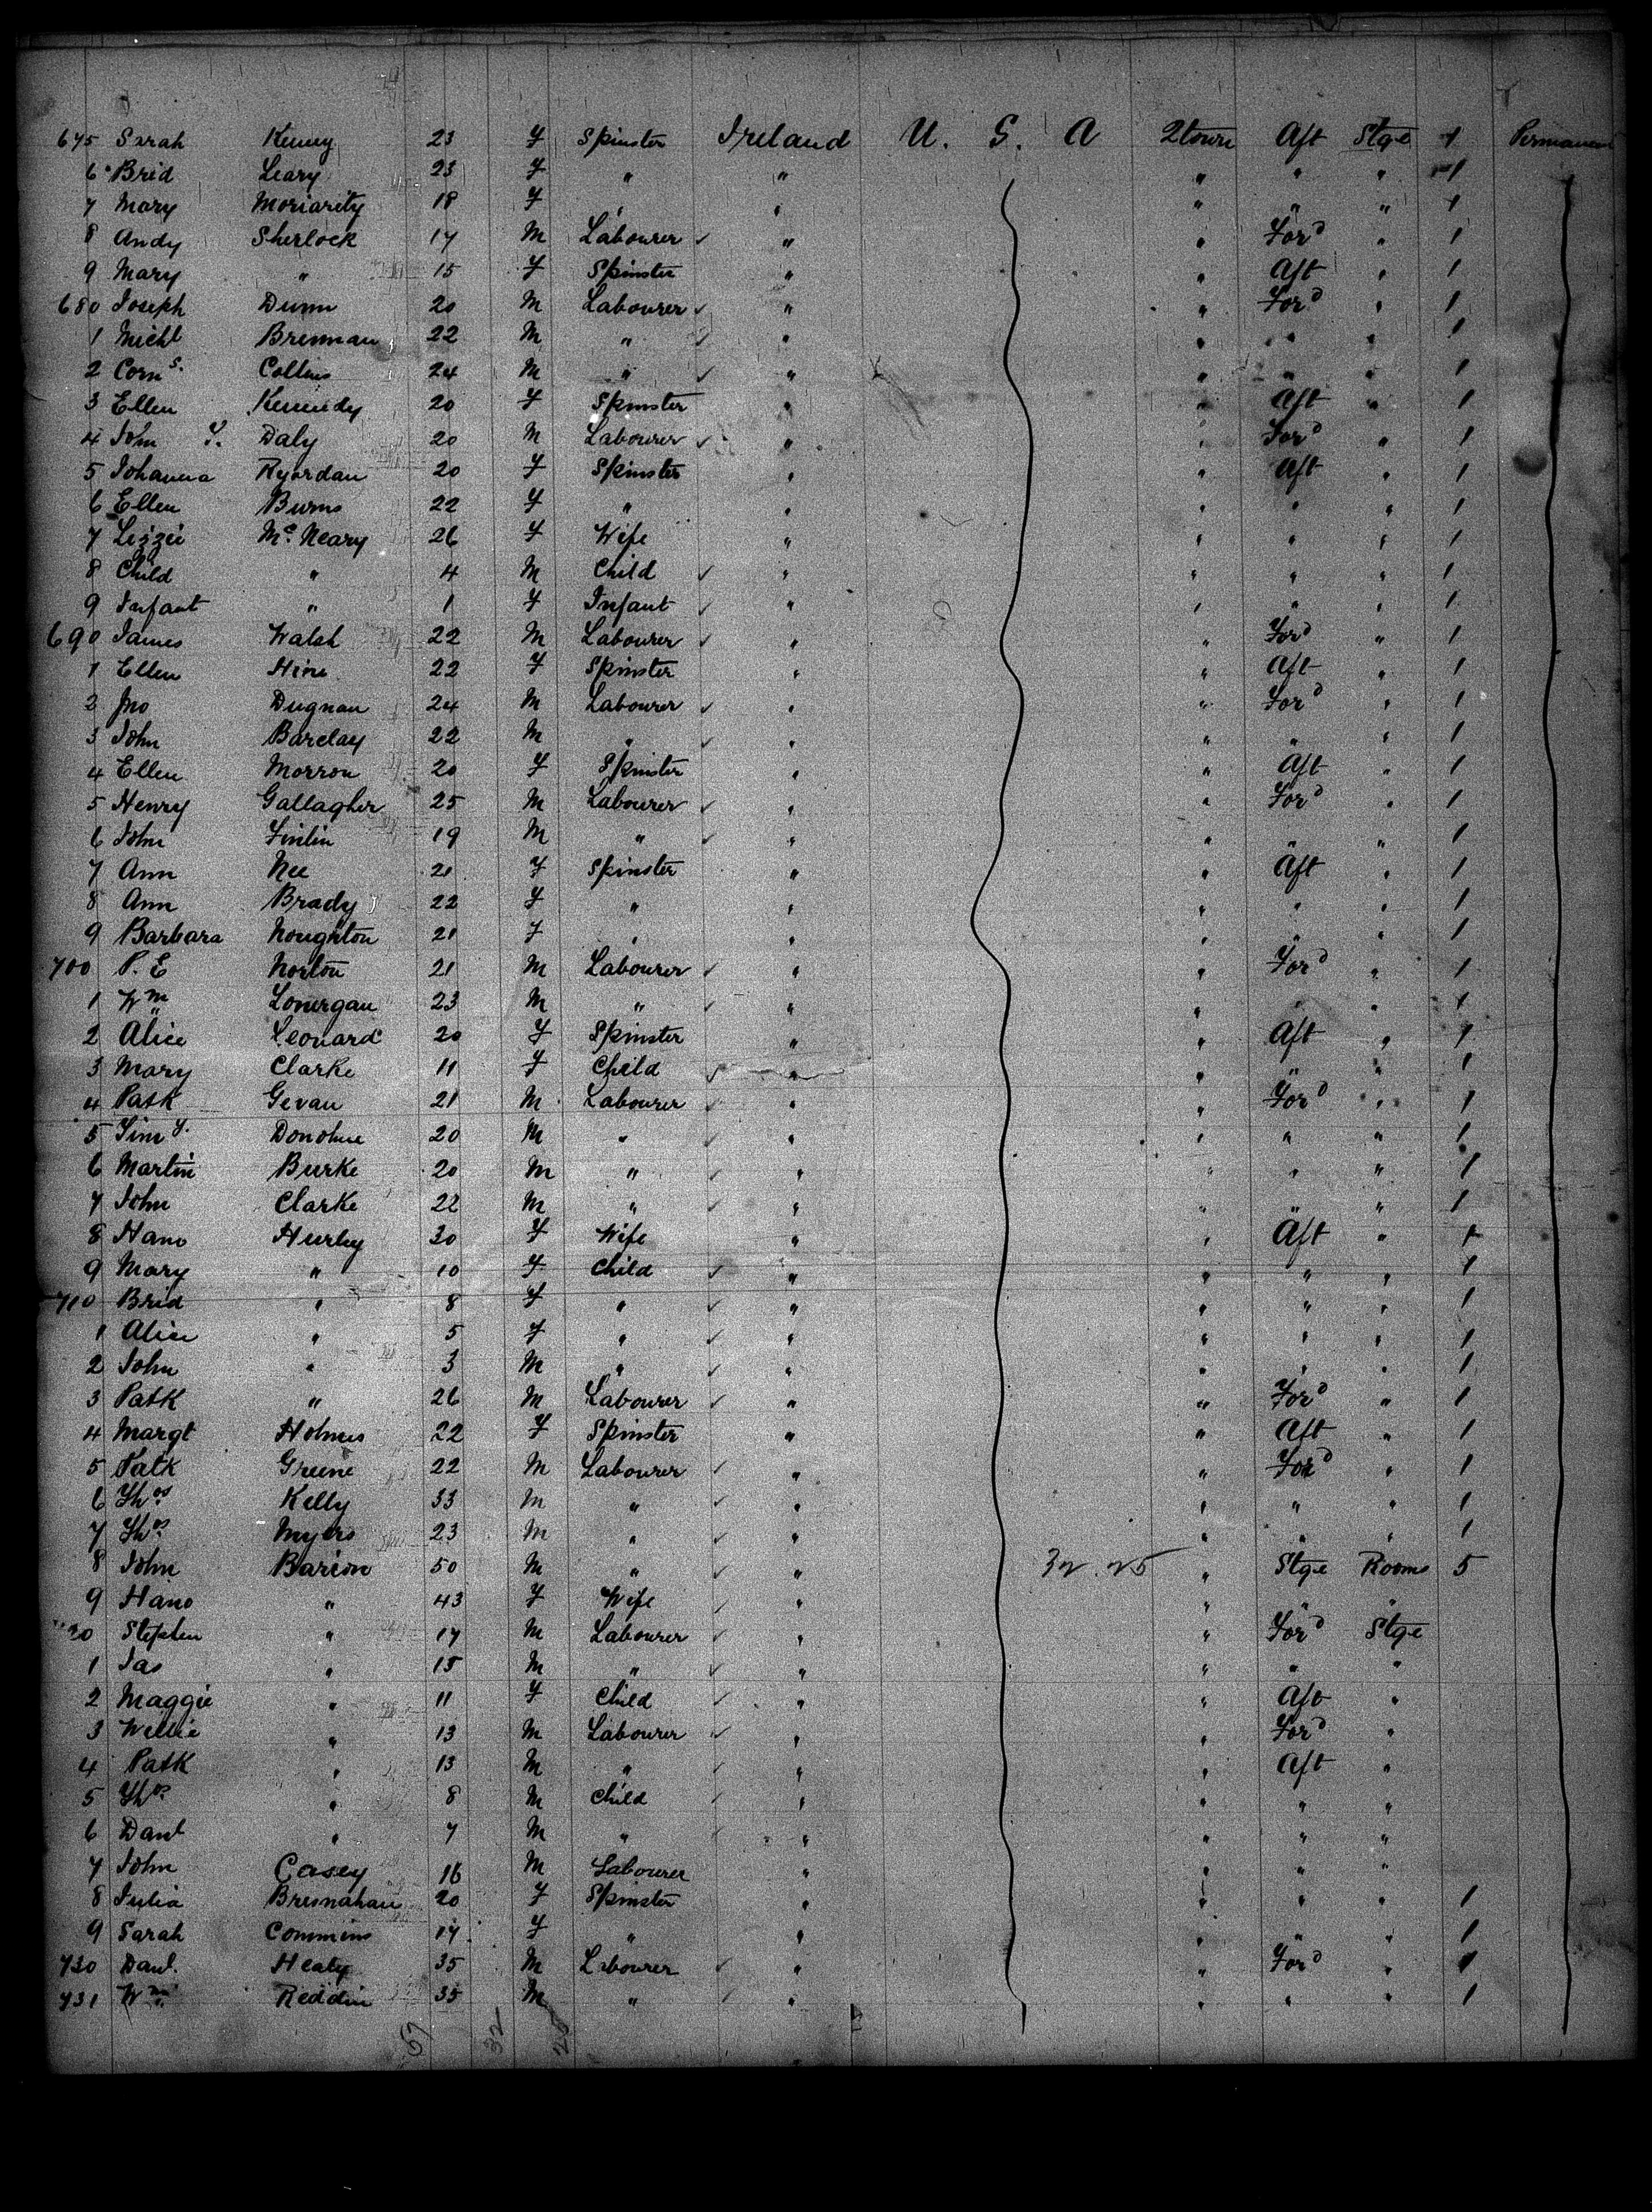 675 Sarah Kenny 23 F Spinster Ireland U. S. A Qtown Aft Stge 1 Permanent
6 Brid Leary 23 F " " " " " 1
7 Mary Moriarity 18 F " " " " " 1
8 Andy Sherlock 17 M Labourer ✓ " " For'd " 1
9 Mary " 15 F Spinster " " Aft " 1
680 Joseph Dunn 20 M Labourer ✓ " " For'd " 1
1 Michl Brennan 22 M " ✓ " " " " 1
2 Corns. Collins 24 M " ✓ " " " " 1
3 Ellen Kennedy 20 F Spinster " " Aft " 1
4 John Y. Daly 20 M Labourer ✓ " " For'd " 1
5 Johanna Ryordan 20 F Spinster " " Aft " 1
6 Ellen Burns 22 F " " " " " 1
7 Lizzie Mc. Neary 26 F Wife " " " " 1
8 Child " 4 M Child ✓ " " " " 1
9 Infant " 1 F Infant ✓ " " " " 1
690 James Walsh 22 M Labourer ✓ " " For'd " 1
1 Ellen 22 F Spinster " " Aft " 1
2 Jno Dugnan 24 M Labourer ✓ " " For'd " 1
3 John Barclay 22 M " ✓ " " " " 1
4 Ellen Morron 20 F Spinster " " Aft " 1
5 Henry Gallagher 25 M Labourer ✓ " " For'd " 1
6 John Finlin 19 M " ✓ " " " " 1
7 Ann Nee 21 F Spinster " " Aft " 1
8 Ann Brady 22 F " " " " " 1
9 Barbara Noughton 21 F " " " " " 1
700 P. E Norton 21 M Labourer ✓ " " For'd " 1
1 Wm Lonergan 23 M " ✓ " " " " 1
2 Alice Leonard 20 F Spinster " " Aft " 1
3 Mary Clarke 11 F Child ✓ " " " " 1
4 Patk Gevan 21 M Labourer ✓ " " For'd " 1
5 Timy. Donohue 20 M " ✓ " " " " 1
6 Martin Burke 20 M " ✓ " " " " 1
7 John Clarke 22 M " ✓ " " " " 1
8 Hano Hurley 30 F Wife " " Aft " 1
9 Mary " 10 F Child ✓ " " " " 1
710 Brid " 8 F " ✓ " " " " 1
1 Alice " 5 F " ✓ " " " " 1
2 John " 3 M " ✓ " " " " 1
3 Patk " 26 M Labourer ✓ " " For'd " 1
4 Margt Holmes 22 F Spinster " " Aft " 1
5 Patk Greene 22 M Labourer ✓ " " For'd " 1
6 Thos. Kelly 33 M " ✓ " " " " 1
7 Thos. Myers 23 M " ✓ " " " " 1
8 John 50 M " ✓ " " Stge Rooms 5
9 Hano " 43 F Wife ✓ " " " "
20 Stephen " 17 M Labourer ✓ " " For'd Stge
1 Jas " 15 M " ✓ " " " "
2 Maggie " 11 F Child ✓ " " Aft "
3 Willie " 13 M Labourer ✓ " " For'd "
4 Patk " 13 M " ✓ " " Aft "
5 Thos. " 8 M Child ✓ " " " "
6 Danl " 7 M " ✓ " " " "
7 John Casey 16 M Labourer " " " "
8 Julia Bresnahan 20 F Spinster " " " " 1
9 Sarah Commins 17 F " " " " " 1
730 Danl. Healy 35 M Labourer ✓ " " For'd " 1
731 Wm. Reddin 35 M " ✓ " " " " 1